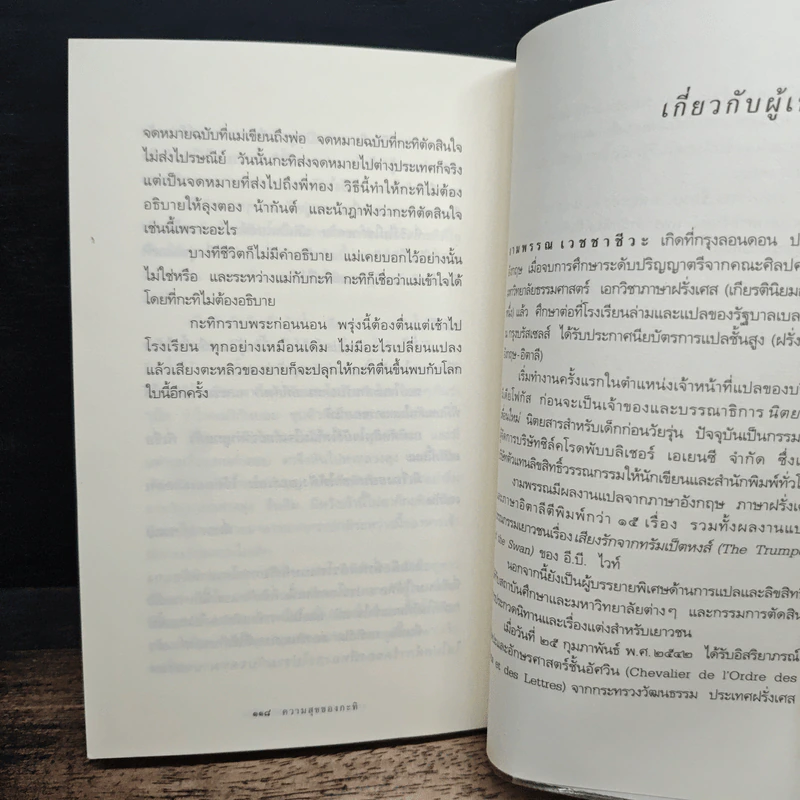 จดหมายฉบับที่แม่เขียนถึงพ่อ จดหมายฉบับที่กะทิตัดสินใจ
ไม่ส่งไปรษณีย์ วันนั้นกะทิส่งจดหมายไปต่างประเทศก็จริง
แต่เป็นจดหมายที่ส่งไปถึงพี่ทอง วิธีนี้ทำให้กะทิไม่ต้อง
อธิบายให้ลุงตอง น้ากันต์ และน้าฎาฟังว่ากะทิตัดสินใจ
เช่นนี้เพราะอะไร
บางทีชีวิตก็ไม่มีคำอธิบาย แม่เคยบอกไว้อย่างนั้น
ไม่ใช่หรือ และระหว่างแม่กับกะทิ กะทิก็เชื่อว่าแม่เข้าใจได้
โดยที่กะทิไม่ต้องอธิบาย
กะทิกราบพระก่อนนอน พรุ่งนี้ต้องตื่นแต่เช้าไป
โรงเรียน ทุกอย่างเหมือนเดิม ไม่มีอะไรเปลี่ยนแปลง
แล้วเสียงตะหลิวของยายก็จะปลุกให้กะทิตื่นขึ้นพบกับโลก
ใบนี้อีกครั้ง
๑๑๘ ความสุขของกะทิ
เกี่ยวกับผู้เ
งามพรรณ เวชชาชีวะ เกิดที่กรุงลอนดอน ป
อังกฤษ เมื่อจบการศึกษาระดับปริญญาตรีจากคณะศิลปศ
มหาวิทยาลัยธรรมศาสตร์ เอกวิชาภาษาฝรั่งเศส (เกียรตินิยมอ
หนึ่ง) แล้ว ศึกษาต่อที่โรงเรียนล่ามและแปลของรัฐบาลเบล
ณ กรุงบรัสเซลส์ ได้รับประกาศนียบัตรการแปลชั้นสูง (ฝรั่ง
อังกฤษ-อิตาลี)
เริ่มทำงานครั้งแรกในตำแหน่งเจ้าหน้าที่แปลของบริ
ดิโฟกัส ก่อนจะเป็นเจ้าของและบรรณาธิการ นิตย
ใหม่ นิตยสารสำหรับเด็กก่อนวัยรุ่น ปัจจุบันเป็นกรรม
จัดการบริษัทซิล์คโรดพับบลิเชอร์ เอเยนซี จำกัด ซึ่งเ
บริษัทตัวแทนลิขสิทธิ์วรรณกรรมให้นักเขียนและสำนักพิมพ์ทั่วโ
งามพรรณมีผลงานแปลจากภาษาอังกฤษ ภาษาฝรั่งเ
และภาษาอิตาลีตีพิมพ์กว่า ๑๕ เรื่อง รวมทั้งผลงานแป
วรรณกรรมเยาวชนเรื่อง เสียงรักจากทรัมเป็ตหงส์ (The Trumpe
the Swan) ของ อี.บี. ไวท์
นอกจากนี้ยังเป็นผู้บรรยายพิเศษด้านการแปลและลิขสิทธิ
สถาบันศึกษาและมหาวิทยาลัยต่างๆ และกรรมการตัดสิน
ประกวดนิทานและเรื่องแต่งสำหรับเยาวชน
เมื่อวันที่ ๒๕ กุมภาพันธ์ พ.ศ. ๒๕๔๒ ได้รับอิสริยาภรณ์
และอักษรศาสตร์ชั้นอัศวิน (Chevalier de l'Ordre des
et des Lettres) จากกระทรวงวัฒนธรรม ประเทศฝรั่งเศส